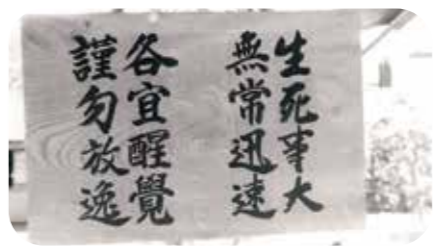 生死事大
無常迅速
各宜醒覺
謹勿放逸